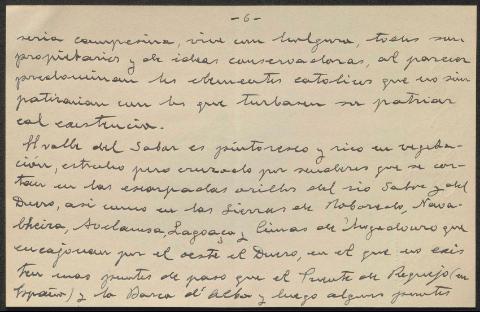 -6-
seria campesina, vive con holgura, todos son
propietarios y de ideas conservadoras, al parecer
predominan los elementos catolicos que no sim
patizarian con los que turbasen su patriar
cal existencia.
El valle del Sabor es pintoresco y rico en vegeta-
ción, estrecho pero cruzado por senderos que se cor-
tan en las escarpadas orillas del rio Sabor y del
Duero, asi como en las Sierras de Roboredo, Nava-
lheira, Avelanosa, Lagoaça y Cimas de Mogadouro que
encajonan por el oeste el Duero, en el que no exis
ten mas puntos de paso que el Puente de Requejo (en
España) y la Barca d'Alba y luego algunos puntos